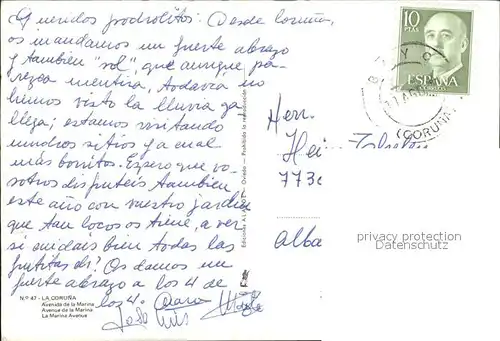 Queridos padrolitos: Desde Coruña,
os mandamos un fuerte abrazo
y tambien "sol", que aunque pa-
rezca mentira, todavía no
hemos visto la lluvia ya
llega; estamos visitando
muchos sitios ya cual
más bonitos. Espero que vo-
sotros disfruteis tambien
este año con vuestro jardin
que tan locos os tiene, a ver
si cuidais bien todas las
frutitas eh? Os damos un
fuerte abrazo a los 4 de
los 4.
Jose Luis
N.º 47 - LA CORUÑA
Avenida de la Marina
Avenue de la Marina
La Marina Avenue
Oviedo - Prohibida la reproducción
10
PTAS
ESPAÑA
CORREOS
(CORUÑA)
Herr.
Hei
773
Alba
privacy protection
Datenschutz